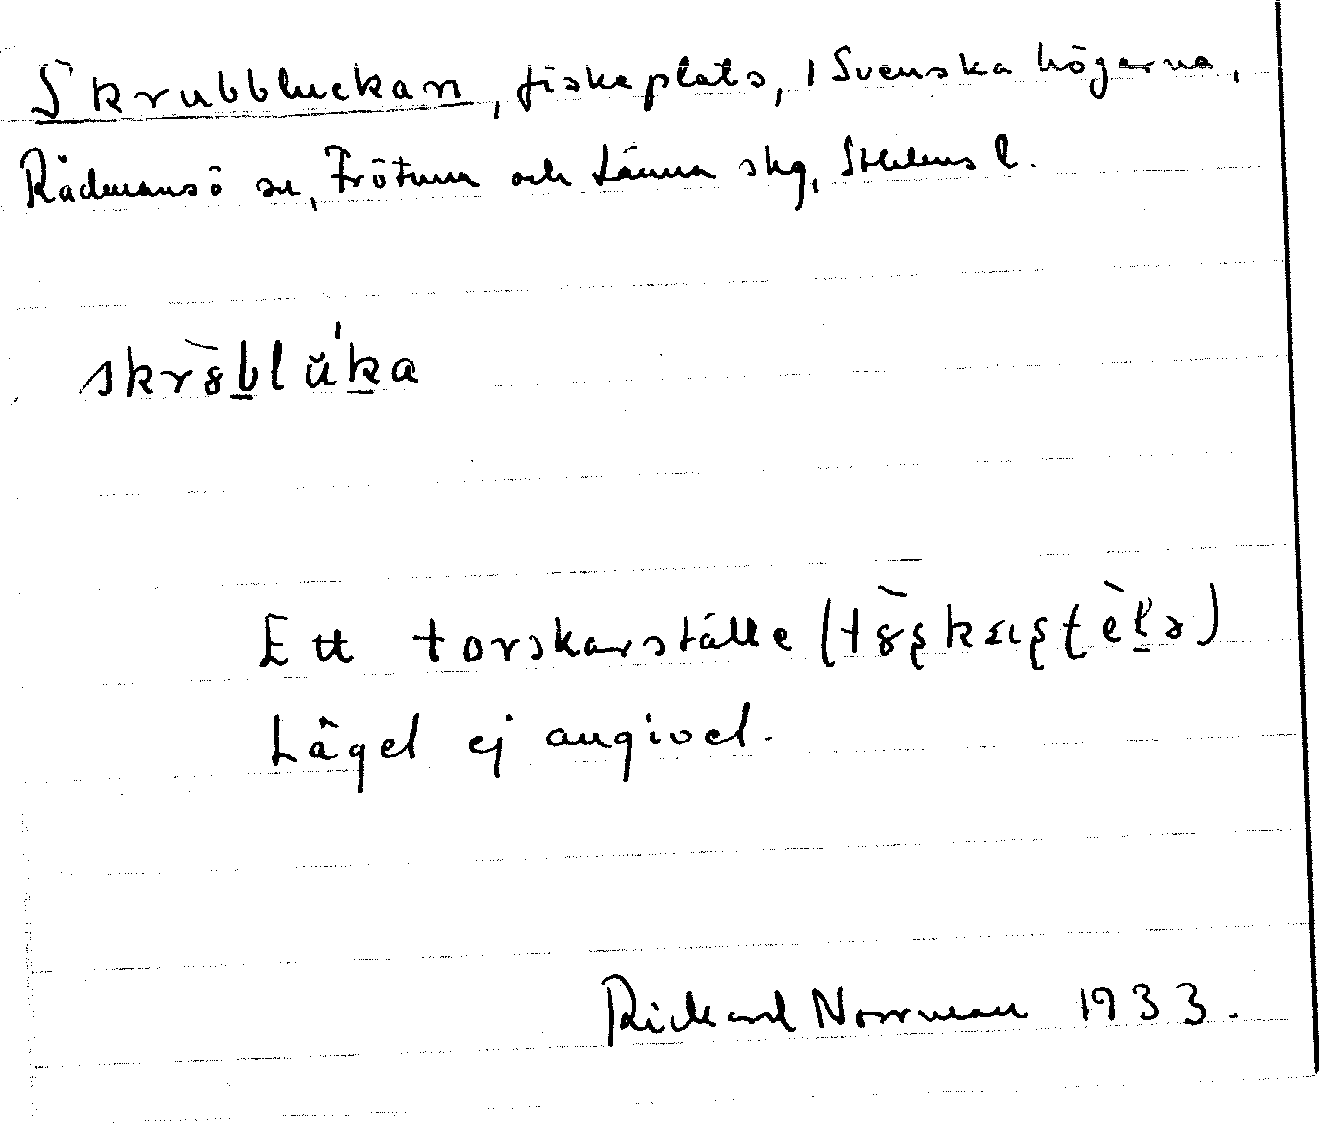 Skrubbluckan, fiskeplats, i Svenska högarna,
Rådmansö sn, Frötuna och Länna skg, Sthlms l.
skrȣ̀blŭ'ka
Ett torskarställe (
Läget ej angivet.
Rickard Norrman 1933.